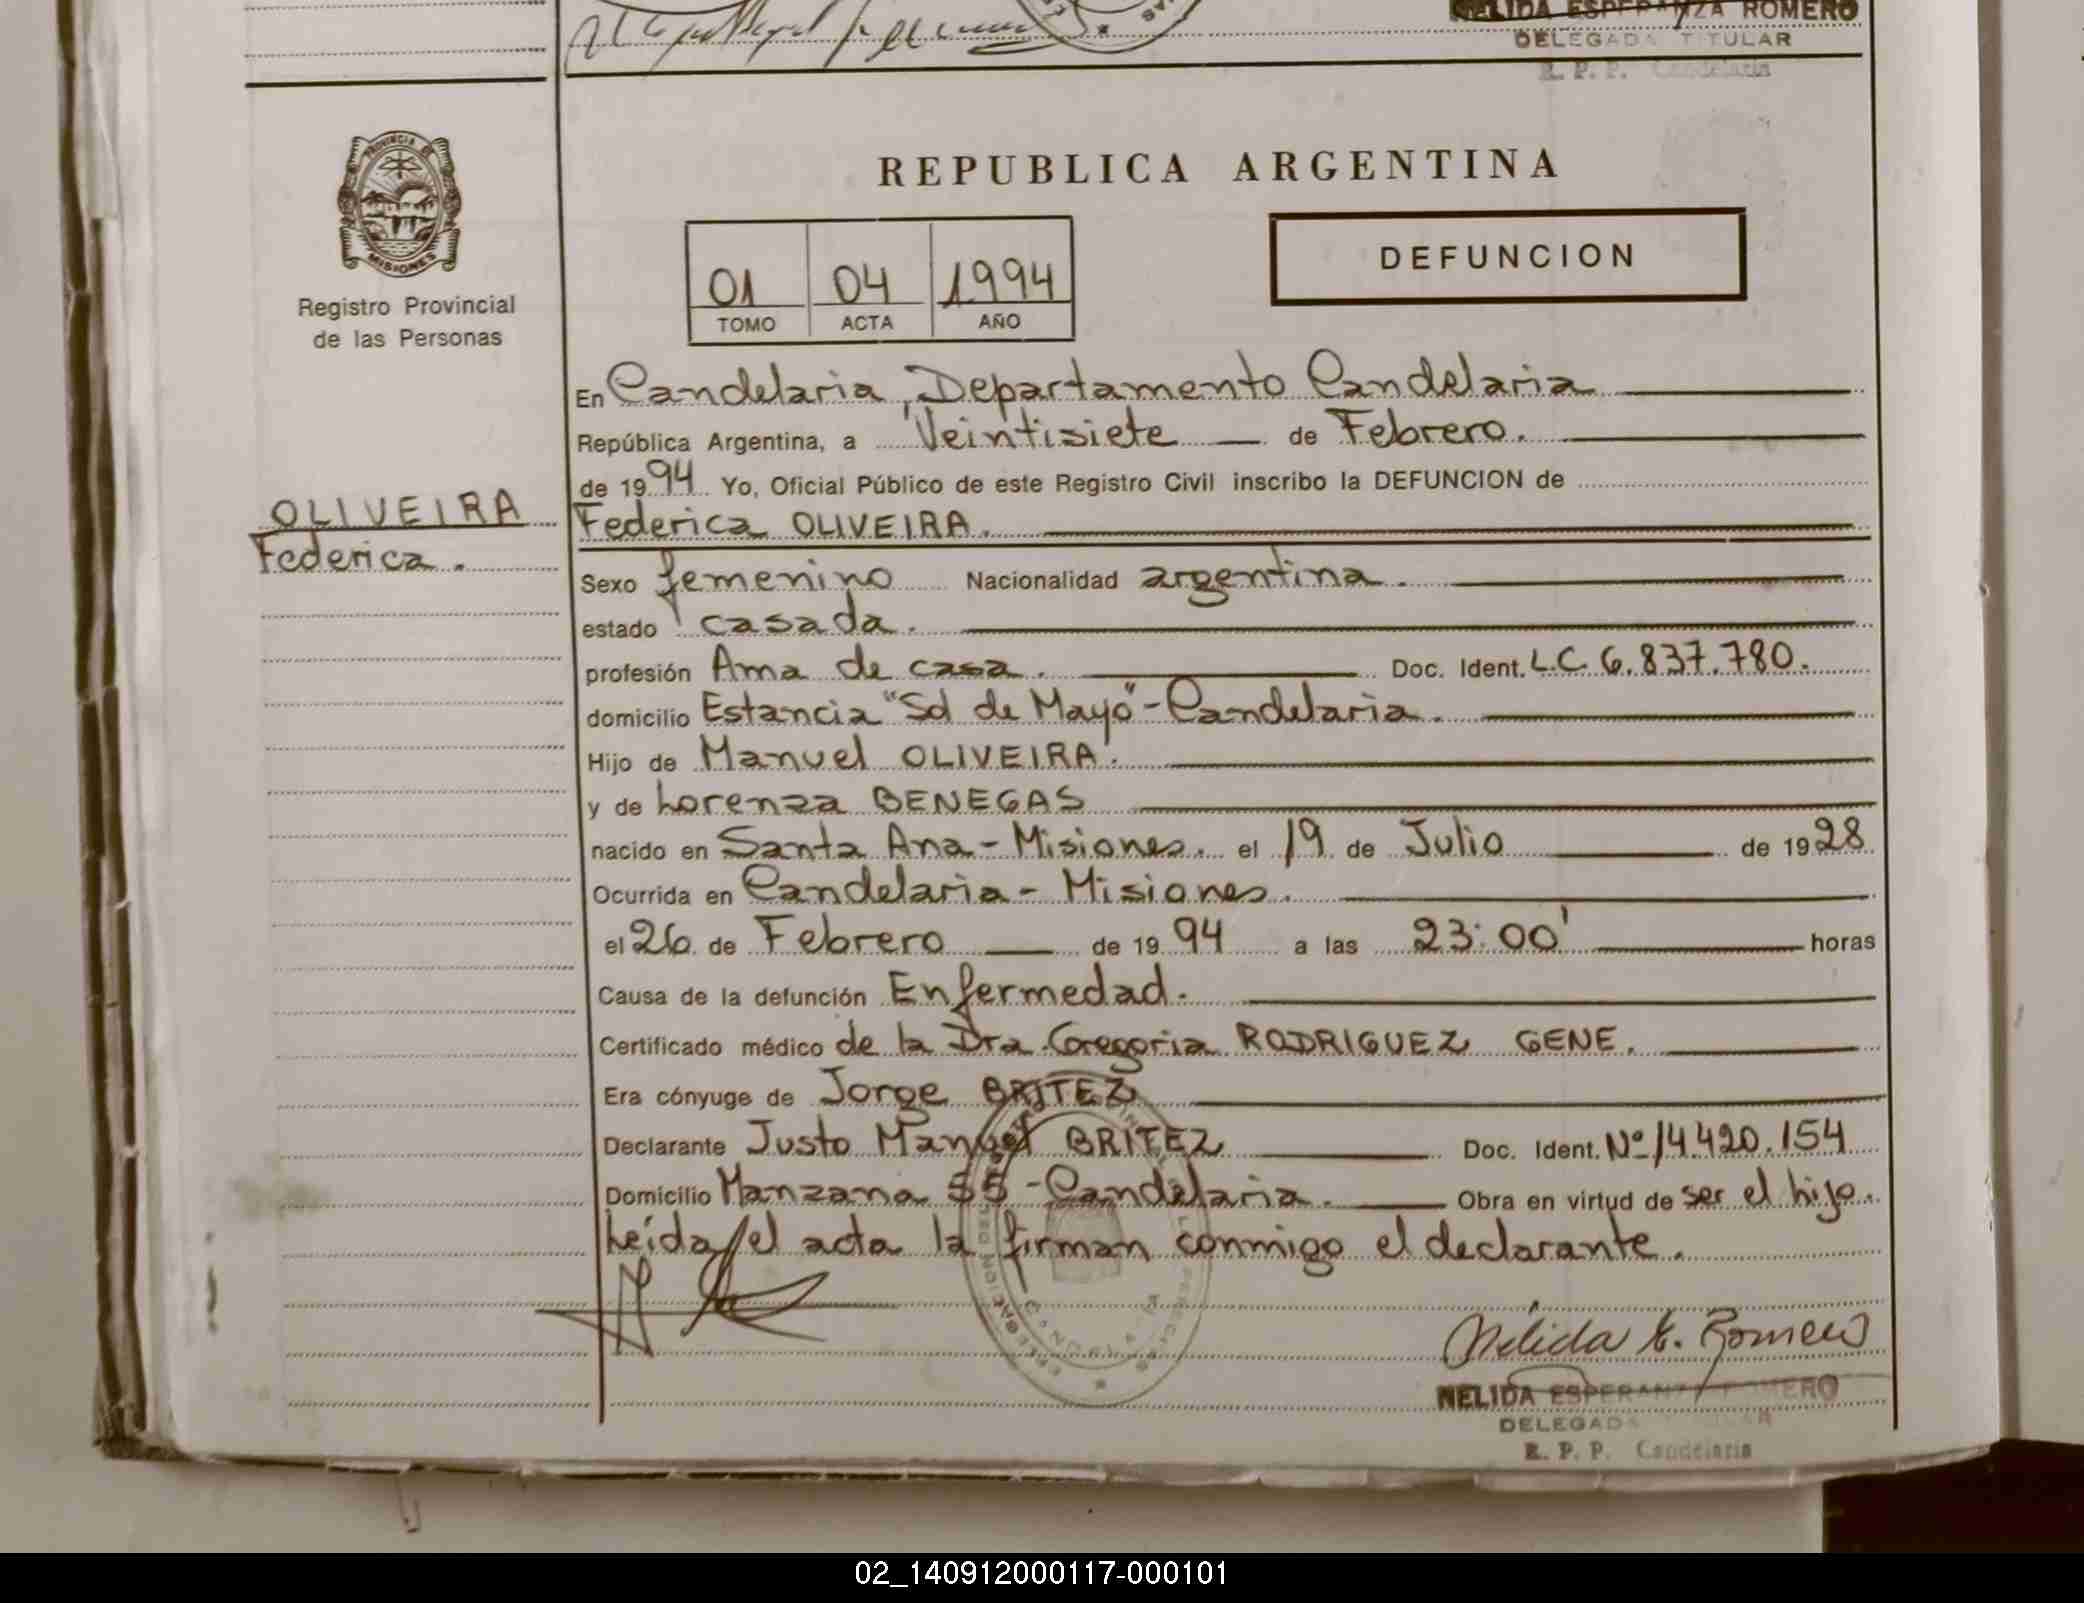 NELIDA ESPERANZA ROMERO
DELEGADA TITULAR
R. P. P. Candelaria
PROVINCIA DE
MISIONES
Registro Provincial
de las Personas
REPUBLICA ARGENTINA
01 04 1994
TOMO ACTA AÑO
DEFUNCION
OLIVEIRA
Federica.
En Candelaria, Departamento Candelaria
República Argentina, a Veintisiete de Febrero.
de 1994 Yo, Oficial Público de este Registro Civil inscribo la DEFUNCION de
Federica OLIVEIRA.
Sexo femenino Nacionalidad argentina.
estado casada.
profesión Ama de casa. Doc. Ident. L.C. 6.837.780.
domicilio Estancia "Sol de Mayo" - Candelaria.
Hijo de Manuel OLIVEIRA.
y de Lorenza BENEGAS
nacido en Santa Ana - Misiones. el 19 de Julio de 1928
Ocurrida en Candelaria - Misiones.
el 26 de Febrero de 1994 a las 23:00' horas
Causa de la defunción Enfermedad.
Certificado médico de la Dra. Gregoria RODRIGUEZ GENE.
Era cónyuge de Jorge BRITEZ
Declarante Justo Manuel BRITEZ Doc. Ident. Nº 14.420.154
Domicilio Manzana 55 - Candelaria. Obra en virtud de ser el hijo.
Leída el acta la firman conmigo el declarante.
Nélida E. Romero
NELIDA ESPERANZA ROMERO
DELEGADA TITULAR
R. P. P. Candelaria
02_140912000117-000101